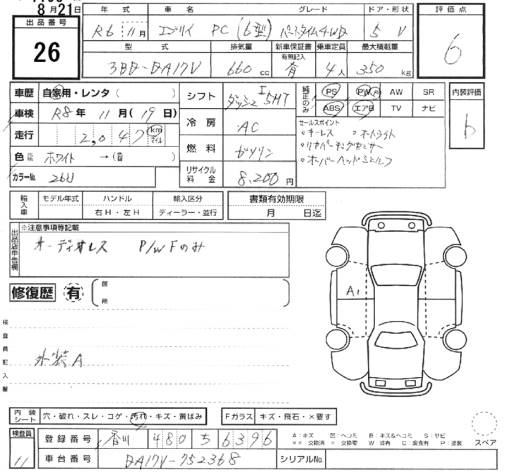 8月21日
出品番号
26
年式 車名 グレード ドア・形状
R6年11月 エブリイ PC(6型)パートタイム4WD 5 V
評価点
6
型式 排気量 新車保証書 有無記入 乗車定員 最大積載量
3BD-DA17V 660cc 有 4人 350kg
車歴 自家用・レンタ
車検 R8年11月(19日)
走行 2,047km マイル
色 ホワイト→(替)
カラーNo. 26U
シフト インダッシュ5MT
冷房 AC
燃料 ガソリン
リサイクル料金 8,200円
純正のみ
PS PW AW SR
ABS エアB TV ナビ
セールスポイント
キーレス オートライト
リヤパーキングセンサー
オーバーヘッドシェルフ
内装評価
輸入車 モデル年式 ハンドル 輸入区分
右H・左H ディーラー・並行
書類有効期限
月 日迄
出品店申告欄
※注意事項等記載
オーディオレス P/W Fのみ
修復歴 有
箇所
検査員記入欄
外装A
A1
内装シート 穴・破れ・スレ・コゲ・汚れ・キズ・黄ばみ
Fガラス キズ・飛石・×要す
スペア
検査員
登録番号 香川 480 6396
車台番号 DA17V-752368
シリアルNo.